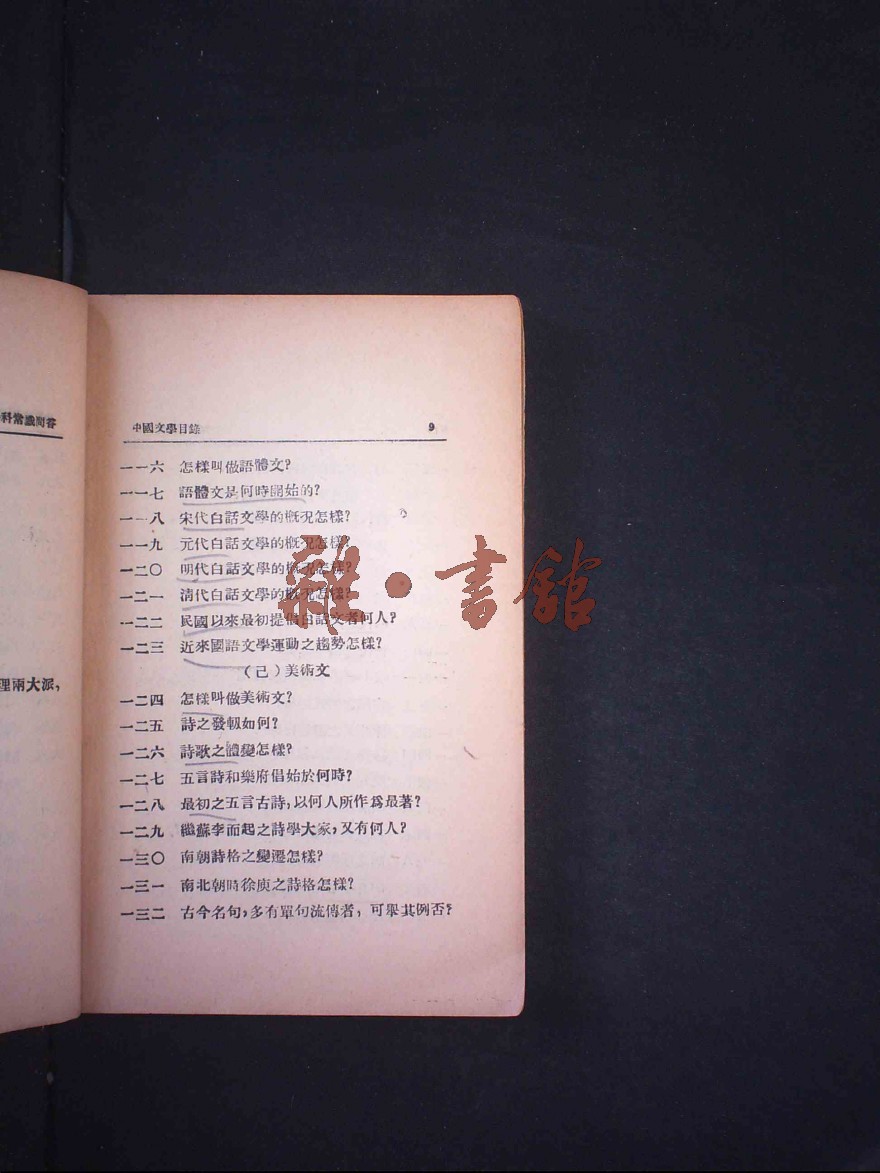 科常識問答
理兩大派,
中國文學目錄 9
一一六 怎樣叫做語體文?
一一七 語體文是何時開始的?
一一八 宋代白話文學的概况怎樣?
一一九 元代白話文學的概况怎樣?
一二〇 明代白話文學的概况怎樣?
一二一 清代白話文學的概况怎樣?
一二二 民國以來最初提倡白話文者何人?
一二三 近來國語文學運動之趨勢怎樣?
(己)美術文
一二四 怎樣叫做美術文?
一二五 詩之發軔如何?
一二六 詩歌之體變怎樣?
一二七 五言詩和樂府倡始於何時?
一二八 最初之五言古詩,以何人所作爲最著?
一二九 繼蘇李而起之詩學大家,又有何人?
一三〇 南朝詩格之變遷怎樣?
一三一 南北朝時徐庾之詩格怎樣?
一三二 古今名句,多有單句流傳者,可舉其例否?
雜·書館